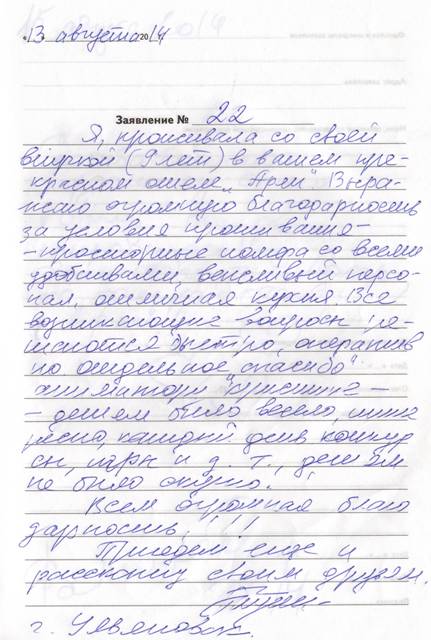 "13" августа 2014
Заявление № 22
Я, проживала со своей
внучкой (9 лет) в вашем пре-
красном отеле „ " Выра-
жаю огромную благодарность
за условия проживания -
- просторные номера со всеми
удобствами, вежливый персо-
нал, отличная кухня. Все
возникающие вопросы ре-
шаются быстро, оператив
но отдельное „спасибо"
аниматору "Кристине" -
- детям было весело, инте
ресно, каждый день конкур
сы, игры и д. т., детям
не было скучно.
Всем огромная благо
дарность!!!
Приедем еще и
расскажу своим друзьям.
г. Ульяновск.